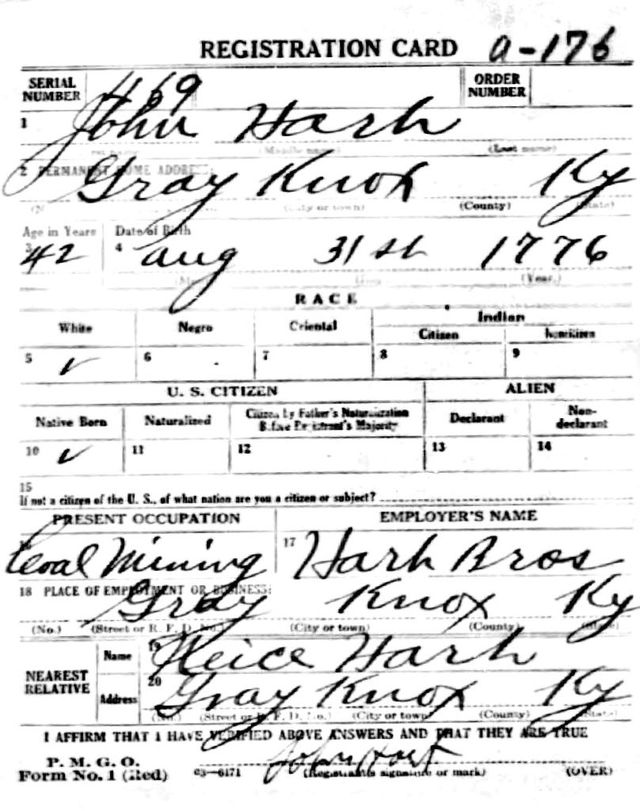 REGISTRATION CARD a-176
SERIAL NUMBER 469 ORDER NUMBER
1 John Harh
(Middle name) (Last name)
2 PERMANENT HOME ADDRESS:
Gray Knox Ky
(City or town) (County) (State)
Age in Years Date of Birth
3 42 4 aug 31st 1776
(Year.)
RACE
White Negro Oriental Indian
Citizen Noncitizen
5 ✓ 6 7 8 9
U. S. CITIZEN ALIEN
Native Born Naturalized Citizen by Father's Naturalization Before Registrant's Majority Declarant Non-declarant
10 ✓ 11 12 13 14
15
If not a citizen of the U. S., of what nation are you a citizen or subject?
PRESENT OCCUPATION EMPLOYER'S NAME
Coal Mining 17 Harh Bros
18 PLACE OF EMPLOYMENT OR BUSINESS:
Gray Knox Ky
(No.) (Street or R. F. D. No.) (City or town) (County) (State)
NEAREST RELATIVE
Name 19 Harh
Address 20 Gray Knox Ky
(No.) (Street or R. F. D. No.) (City or town) (County) (State)
I AFFIRM THAT I HAVE VERIFIED ABOVE ANSWERS AND THAT THEY ARE TRUE
P. M. G. O.
Form No. 1 (Red) 03-6171 John Hart
(Registrant's signature or mark) (OVER)